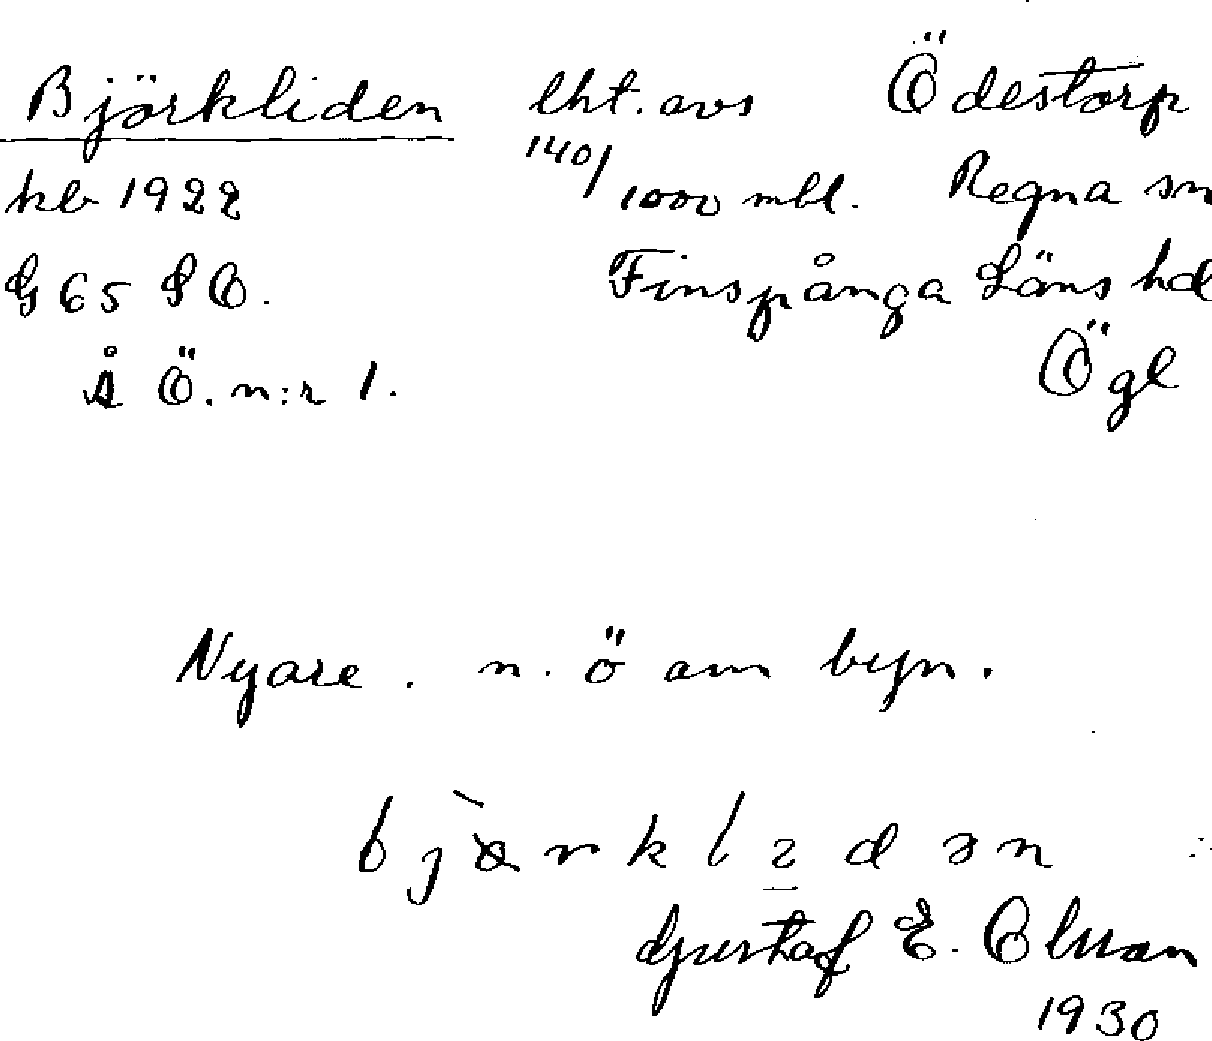 Björkliden lht. avs Ödestorp
hb 1922 140/1000 mbl. Regna sn
G 65 S O. Finspånga Läns hd
Å Ö. n:r 1. Ögl
Nyare. n. ö om byn.
Gustaf E. Olsson
1930